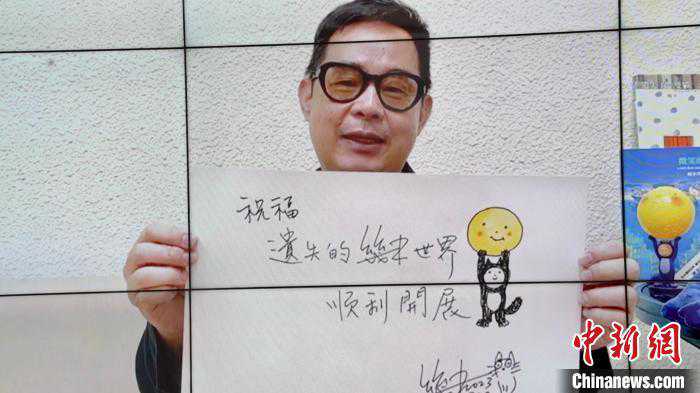 祝福
遺失的幾米世界
順利開展
幾米
2023
中新网
Chinanews.com